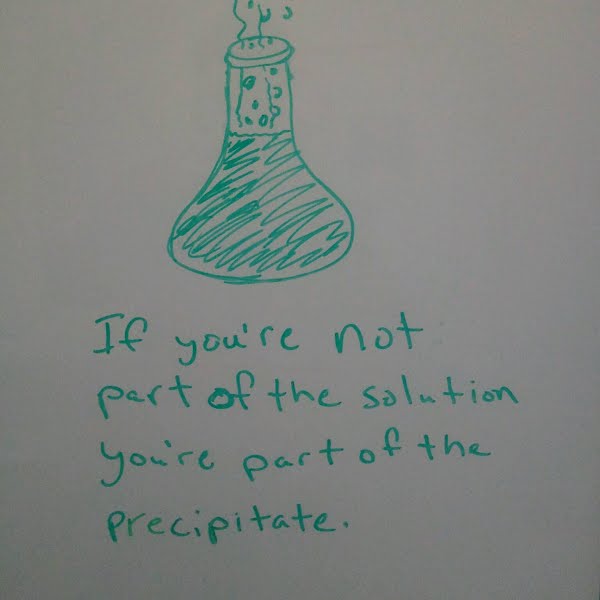 If you're not
part of the solution
you're part of the
precipitate.